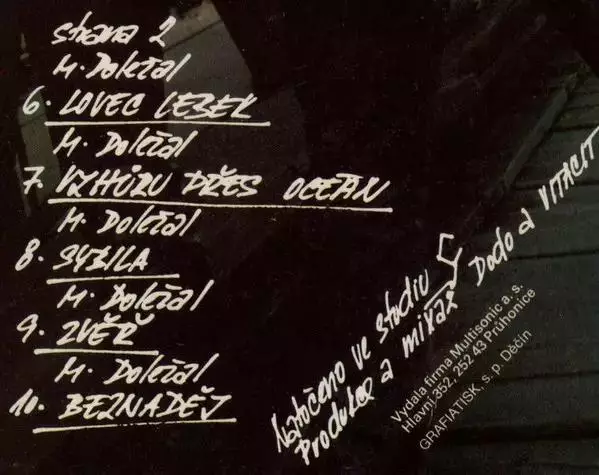 strana 2
M. Doležal
6. LOVEC LEBEK
M. Doležal
7. VZHŮRU PŘES OCEÁN
M. Doležal
8. SYBILA
M. Doležal
9. ZVĚŘ
M. Doležal
10. BEZNADĚJ
Natočeno ve studiu S
Produkce a mixáž Dodo a VITACIT
Vydala firma Multisonic a. s.
Hlavní 352, 252 43 Průhonice
GRAFIATISK, s. p. Děčín